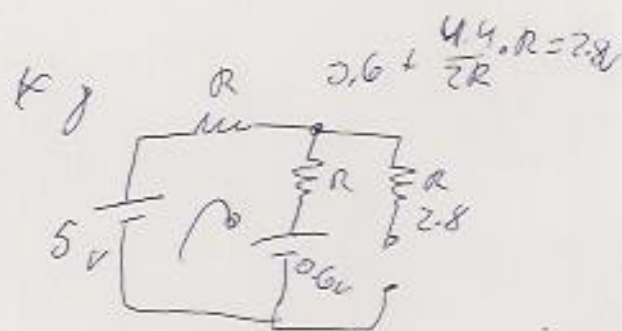 0.6 + 4.4/2R . R = 2.8v
R
R
R
2.8
5 v
0.6v